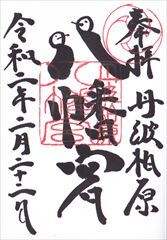 奉拝 丹波柏原
八幡宮
令和二年二月二十二日